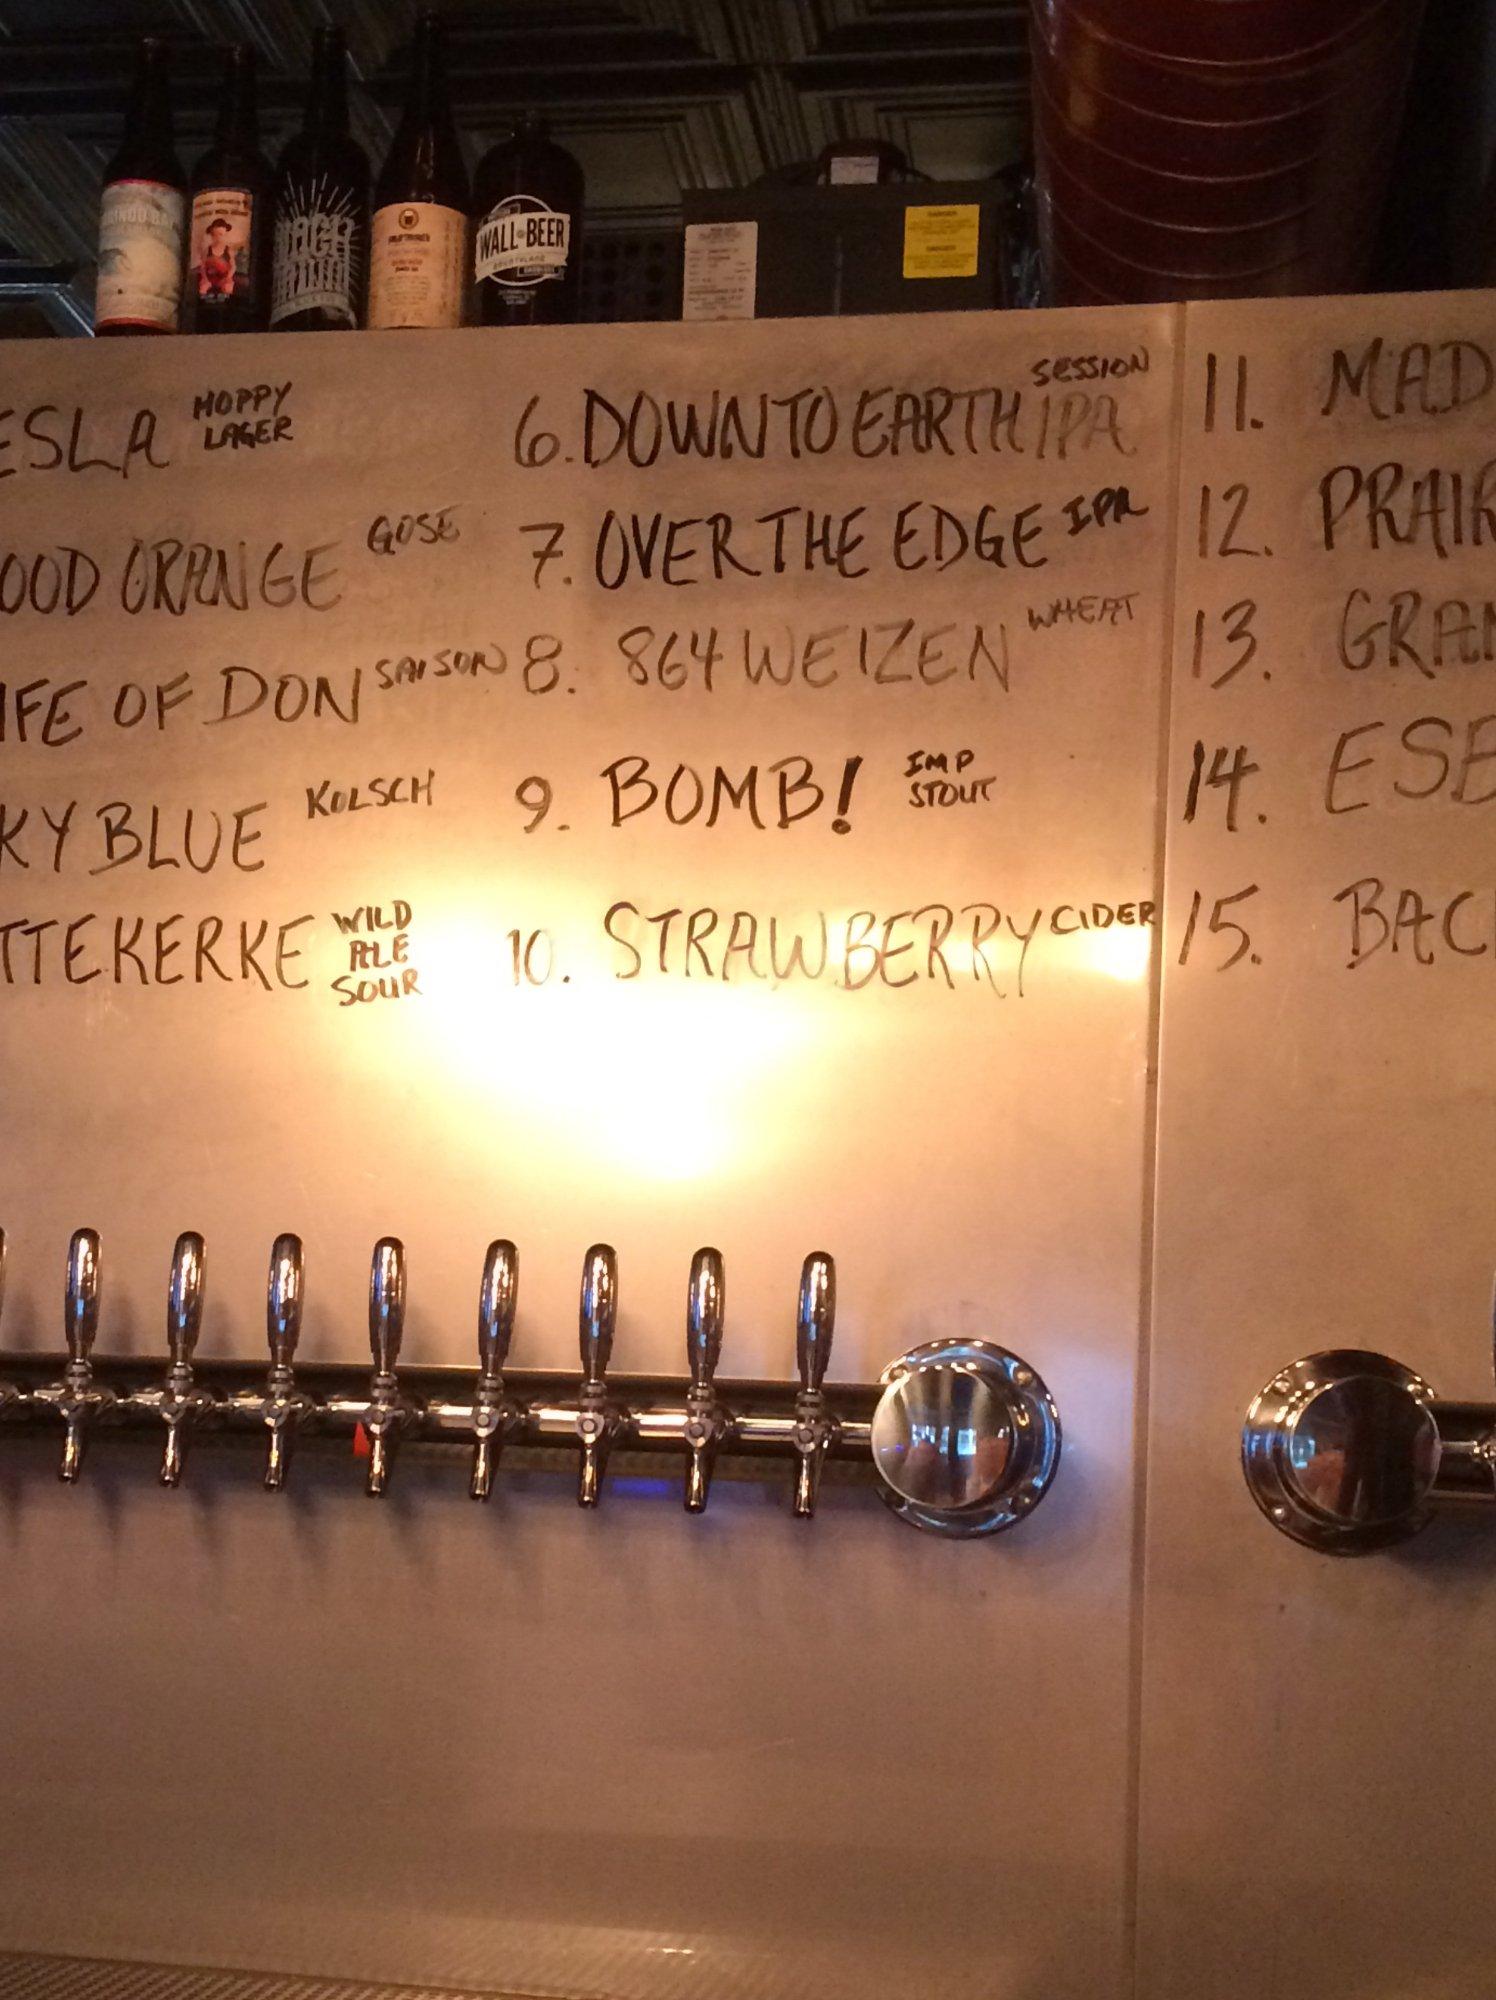 WALL BEER
ESLA HOPPY
LAGER
OOD ORANGE GOSE
IFE OF DON SAISON
KY BLUE KOLSCH
TTEKERKE WILD
ALE
SOUR
6. DOWN TO EARTH SESSION
IPA
7. OVER THE EDGE IPA
8. 864 WEIZEN WHEAT
9. BOMB! IMP
STOUT
10. STRAWBERRY CIDER
11. MAD
12. PRAIR
13. GRAN
14. ESB
15. BAC